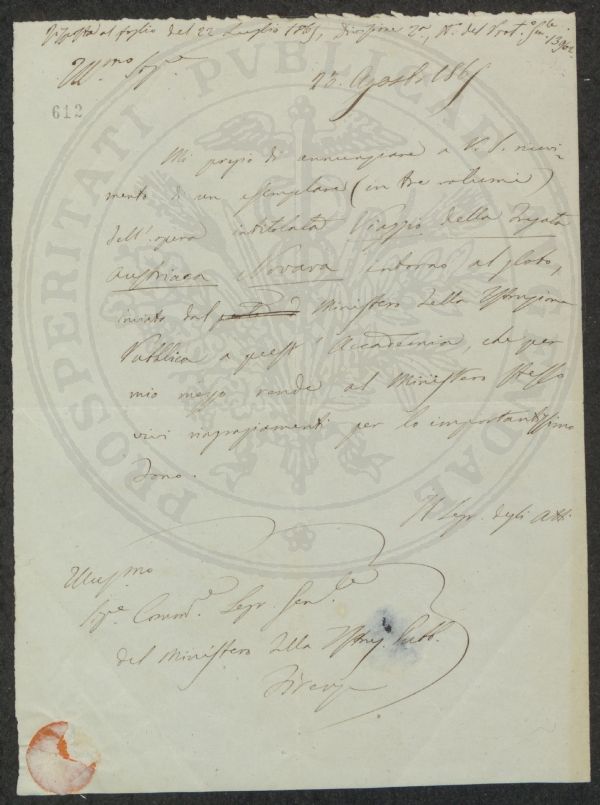 Risposta al foglio del 22 Luglio 1865, Divisione 2a, N.o del Prot. Gen.le 1396
Ill.mo Sig.e
23. Agosto 1865
612
Mi pregio di annunziare a V. S. ricevi-
mento di un esemplare (in tre volumi)
dell'opera intitolata Viaggio della Fregata
Austriaca Novara intorno al globo,
inviato dal Ministero della Istruzione
Pubblica a quest'Accademia, che per
mio mezzo rende al Ministero stesso
vivi ringraziamenti per lo importantissimo
dono.
Il Segr. degli Atti
Illus.mo
Sig.e Comm.e Segr. Gen.le
del Ministero della Istruz. Pubb.
Firenze
PROSPERITATI PVBLICAE AVGENDAE